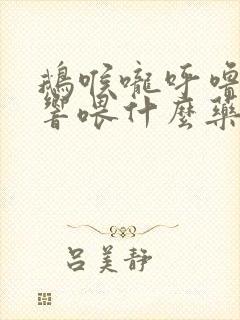 鵝喉嚨呼嚕
響喂什麼藥
呂美靜